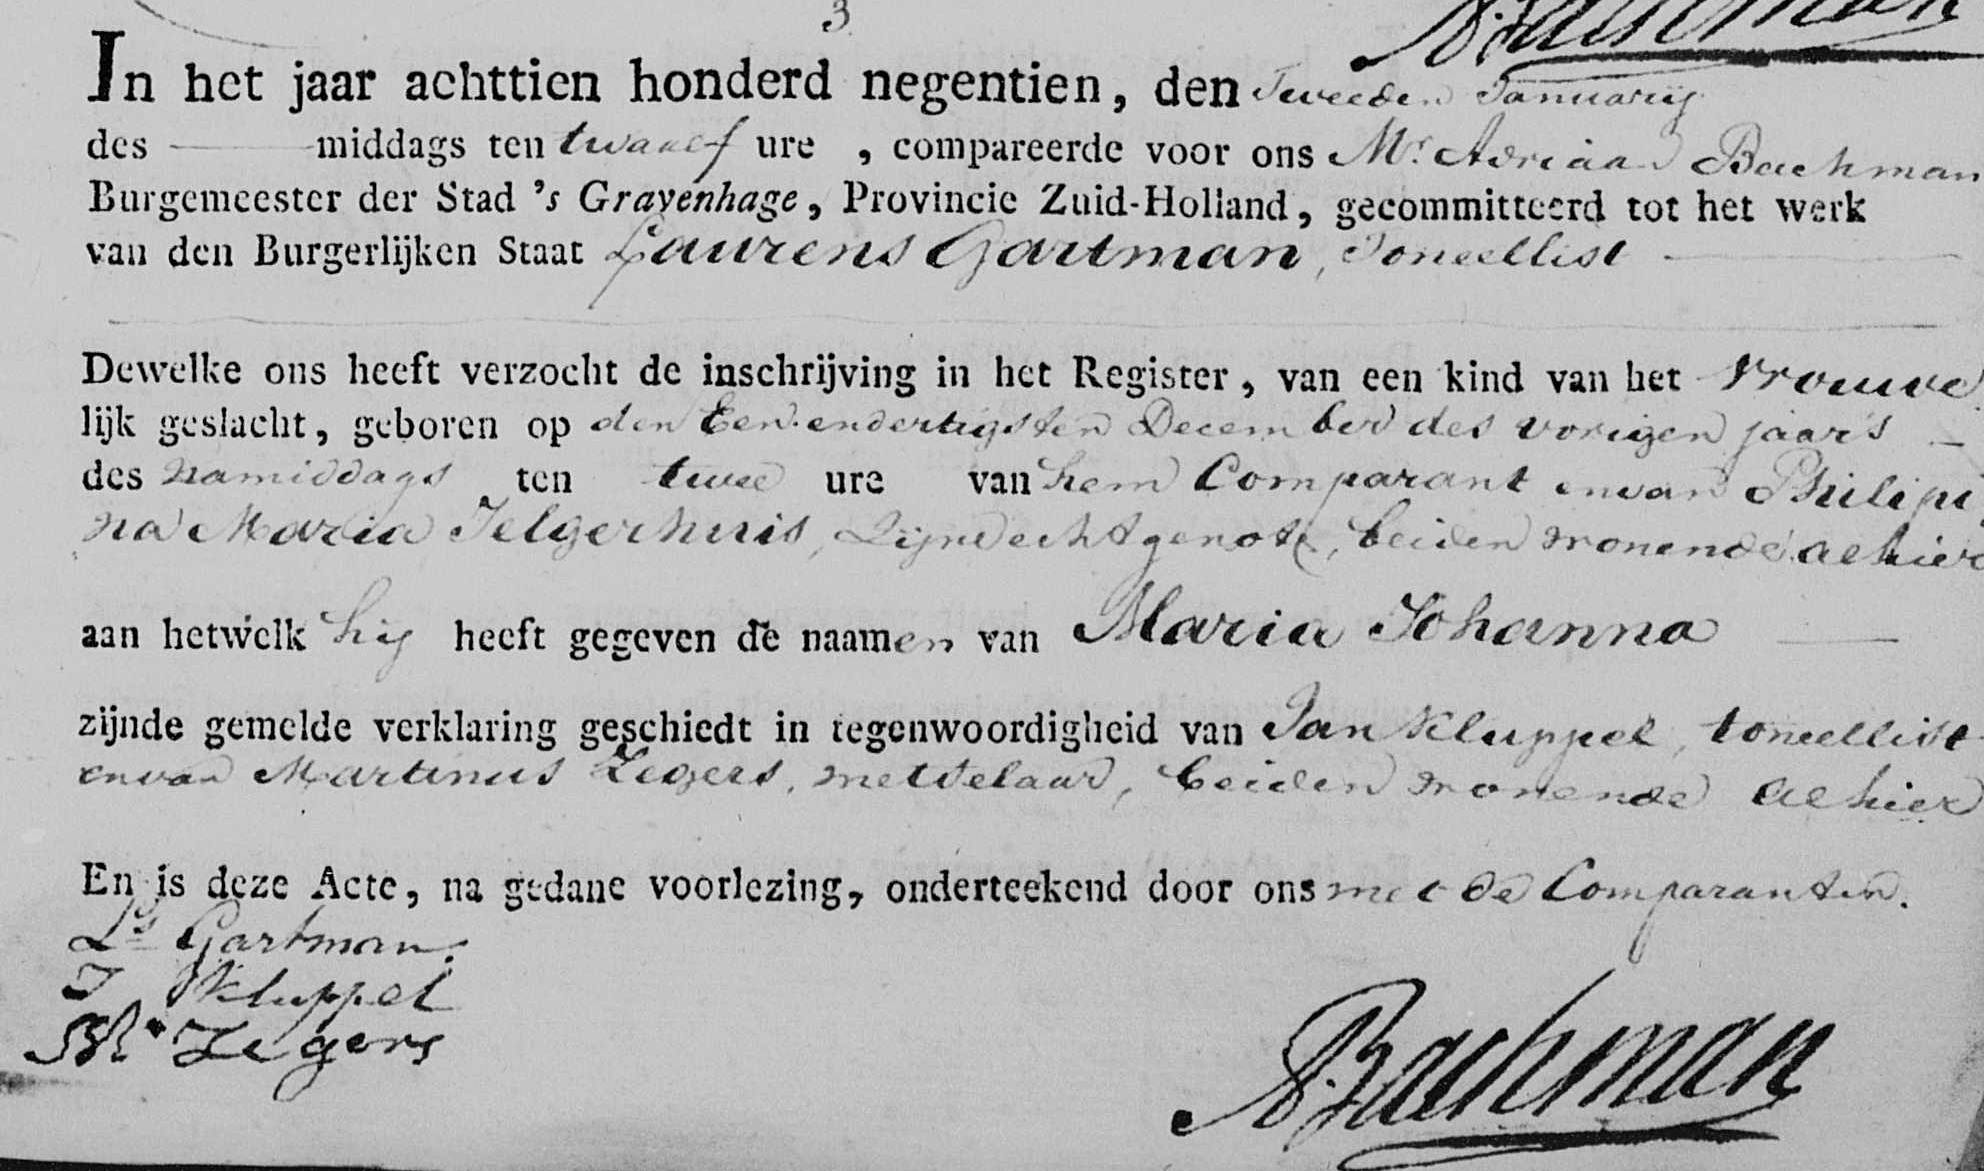 3
A. Bachman
In het jaar achttien honderd negentien, den Tweeden Januarij
des middags ten twaalf ure , compareerde voor ons Mr. Adriaan Bachman
Burgemeester der Stad 's Gravenhage, Provincie Zuid-Holland, gecommitteerd tot het werk
van den Burgerlijken Staat Laurens Gartman, Toneellist
Dewelke ons heeft verzocht de inschrijving in het Register, van een kind van het Vrouwe
lijk geslacht, geboren op den Een endertigsten December des vorigen jaars
des namiddags ten twee ure van hem Comparant en van Philipi
na Maria Jelgerhuis, Zijne echtgenote, beiden wonende alhier
aan hetwelk hij heeft gegeven de naamen van Maria Johanna
zijnde gemelde verklaring geschiedt in tegenwoordigheid van Jan Kluppel, toneellist
en van Martinus Zegers, metselaar, beiden wonende alhier
En is deze Acte, na gedane voorlezing, onderteekend door ons met de Comparanten.
Ls Gartman.
J Kluppel
M. Zegers
A. Bachman